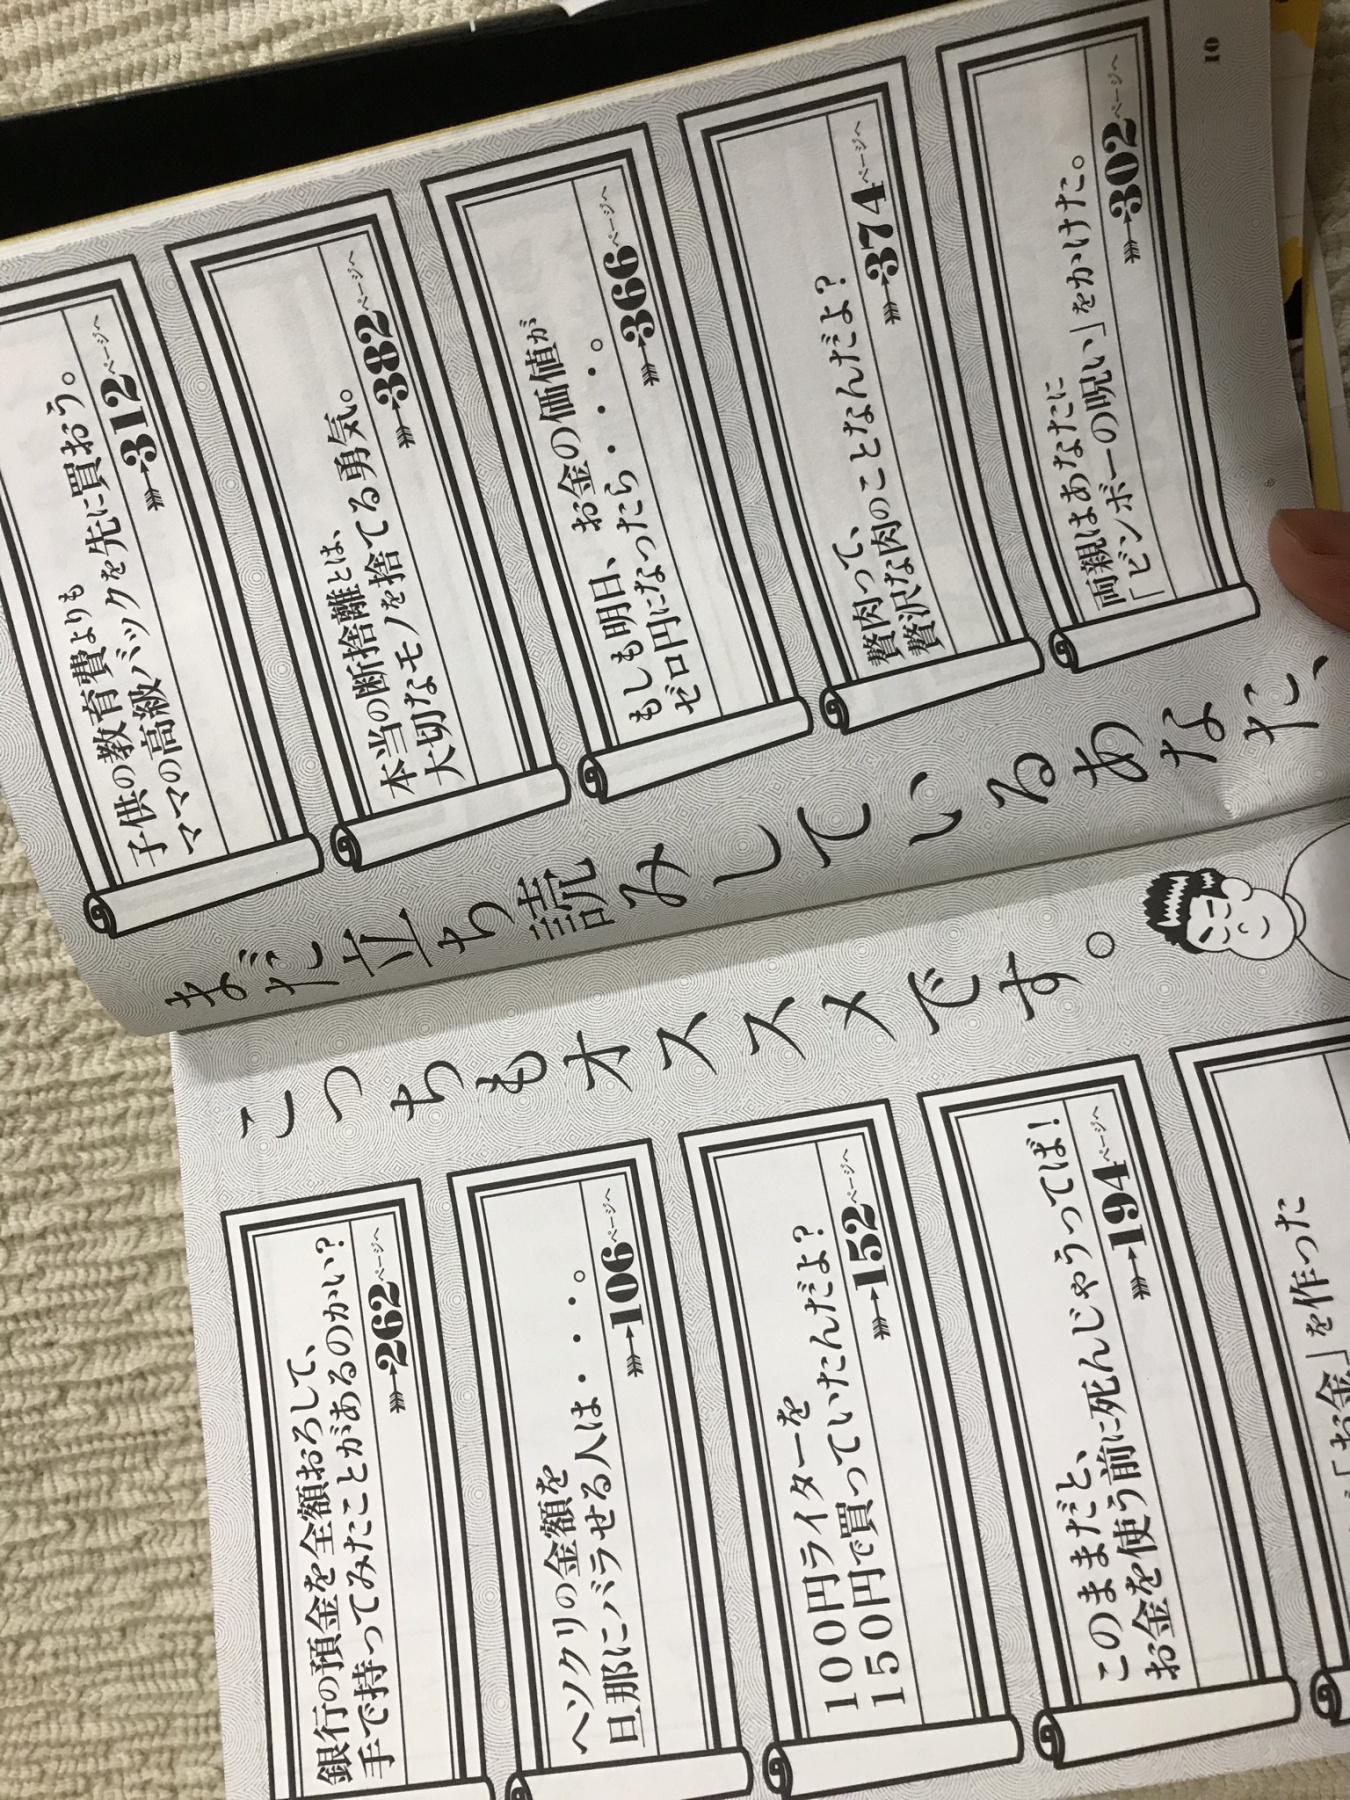 まだ立ち読みしているあなた、
こっちもオススメです。
子供の教育費よりも
ママの高級バックを先に買おう。
312ページへ
本当の断捨離とは、
大切なモノを捨てる勇気。
382ページへ
もしも明日、お金の価値が
ゼロ円になったら・・・。
366ページへ
贅肉って、
贅沢な肉のことなんだよ？
374ページへ
両親はあなたに
「ビンボーの呪い」をかけた。
302ページへ
10
銀行の預金を全額おろして、
手で持ってみたことがあるのかい？
262ページへ
ヘソクリの金額を
旦那にバラせる人は・・・。
106ページへ
100円ライターを
150円で買っていたんだよ？
152ページへ
このままだと、
お金を使う前に死んじゃうってば！
194ページへ
「お金」を作った